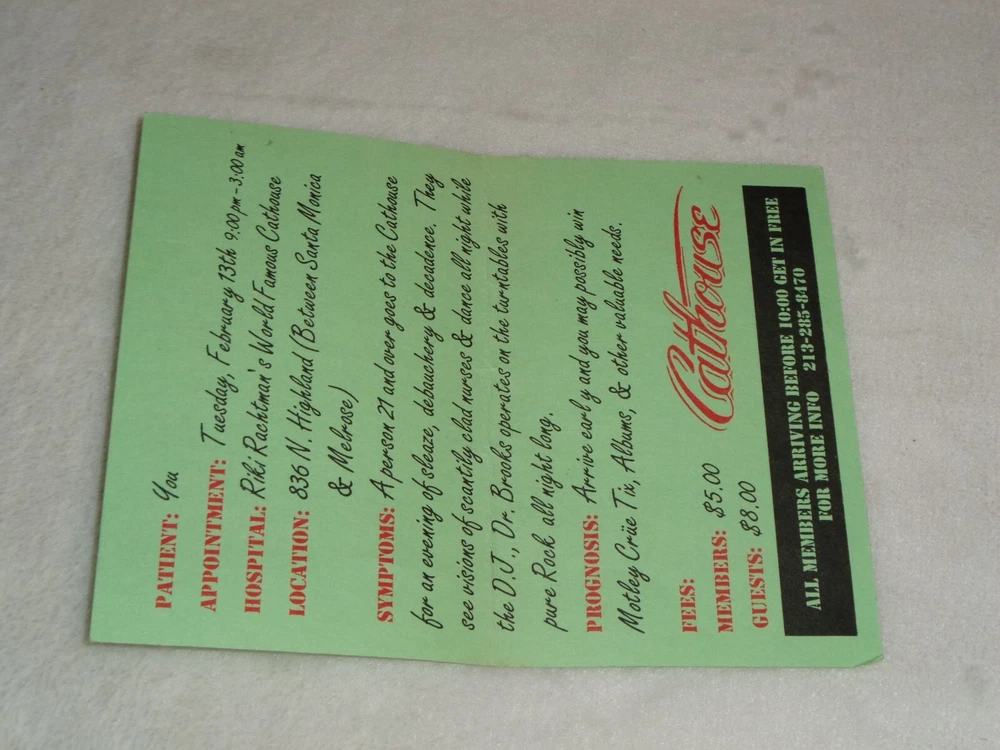 PATIENT: You
APPOINTMENT: Tuesday, February 13th 9:00 pm - 3:00 am
HOSPITAL: Riki Rachtman's World Famous Cathouse
LOCATION: 836 N. Highland (Between Santa Monica
& Melrose)
SYMPTOMS: A person 21 and over goes to the Cathouse
for an evening of sleaze, debauchery & decadence. They
see visions of scantily clad nurses & dance all night while
the D.J., Dr. Brooks operates on the turntables with
pure Rock all night long.
PROGNOSIS: Arrive early and you may possibly win
Motley Crüe Tix, Albums, & other valuable needs.
FEES:
MEMBERS: $5.00
GUESTS: $8.00
Cathouse
ALL MEMBERS ARRIVING BEFORE 10:00 GET IN FREE
FOR MORE INFO 213-285-8470